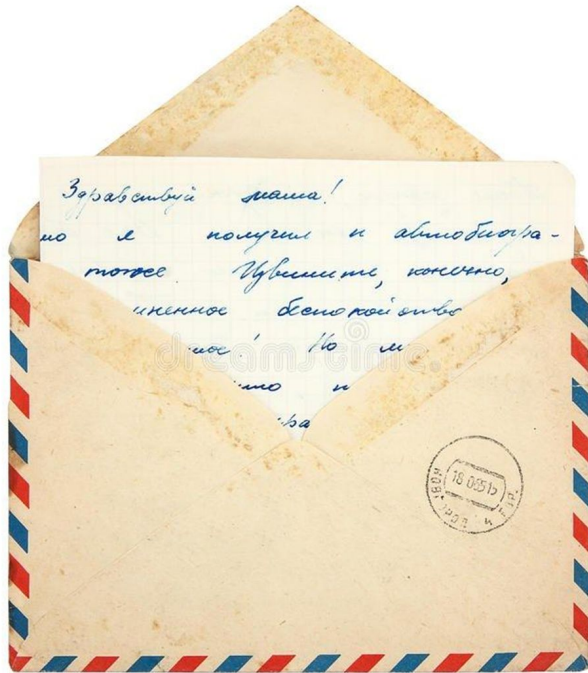 Здравствуй мама!
мо я получил и автобиогра-
тоже Извините, конечно,
иненное беспокойство
мое! Но м
мо н
ра
dreamstime
18 06 55 15